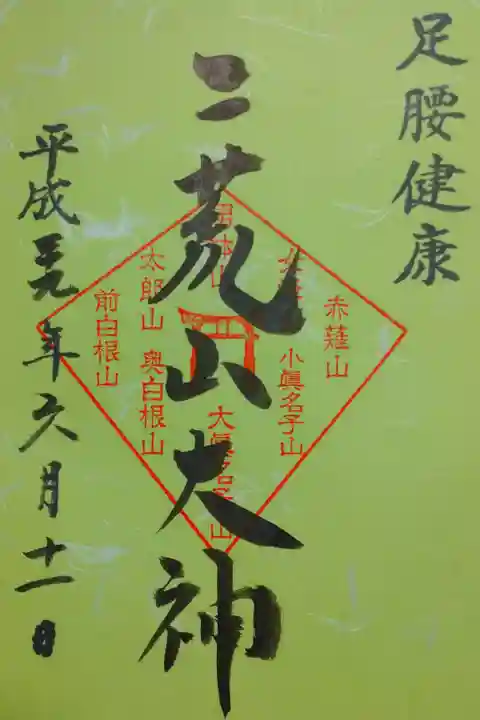 足腰健康
二荒山大神
赤薙山
小眞名子山
大眞名子山
太郎山
奥白根山
前白根山
平成二十九年六月十一日